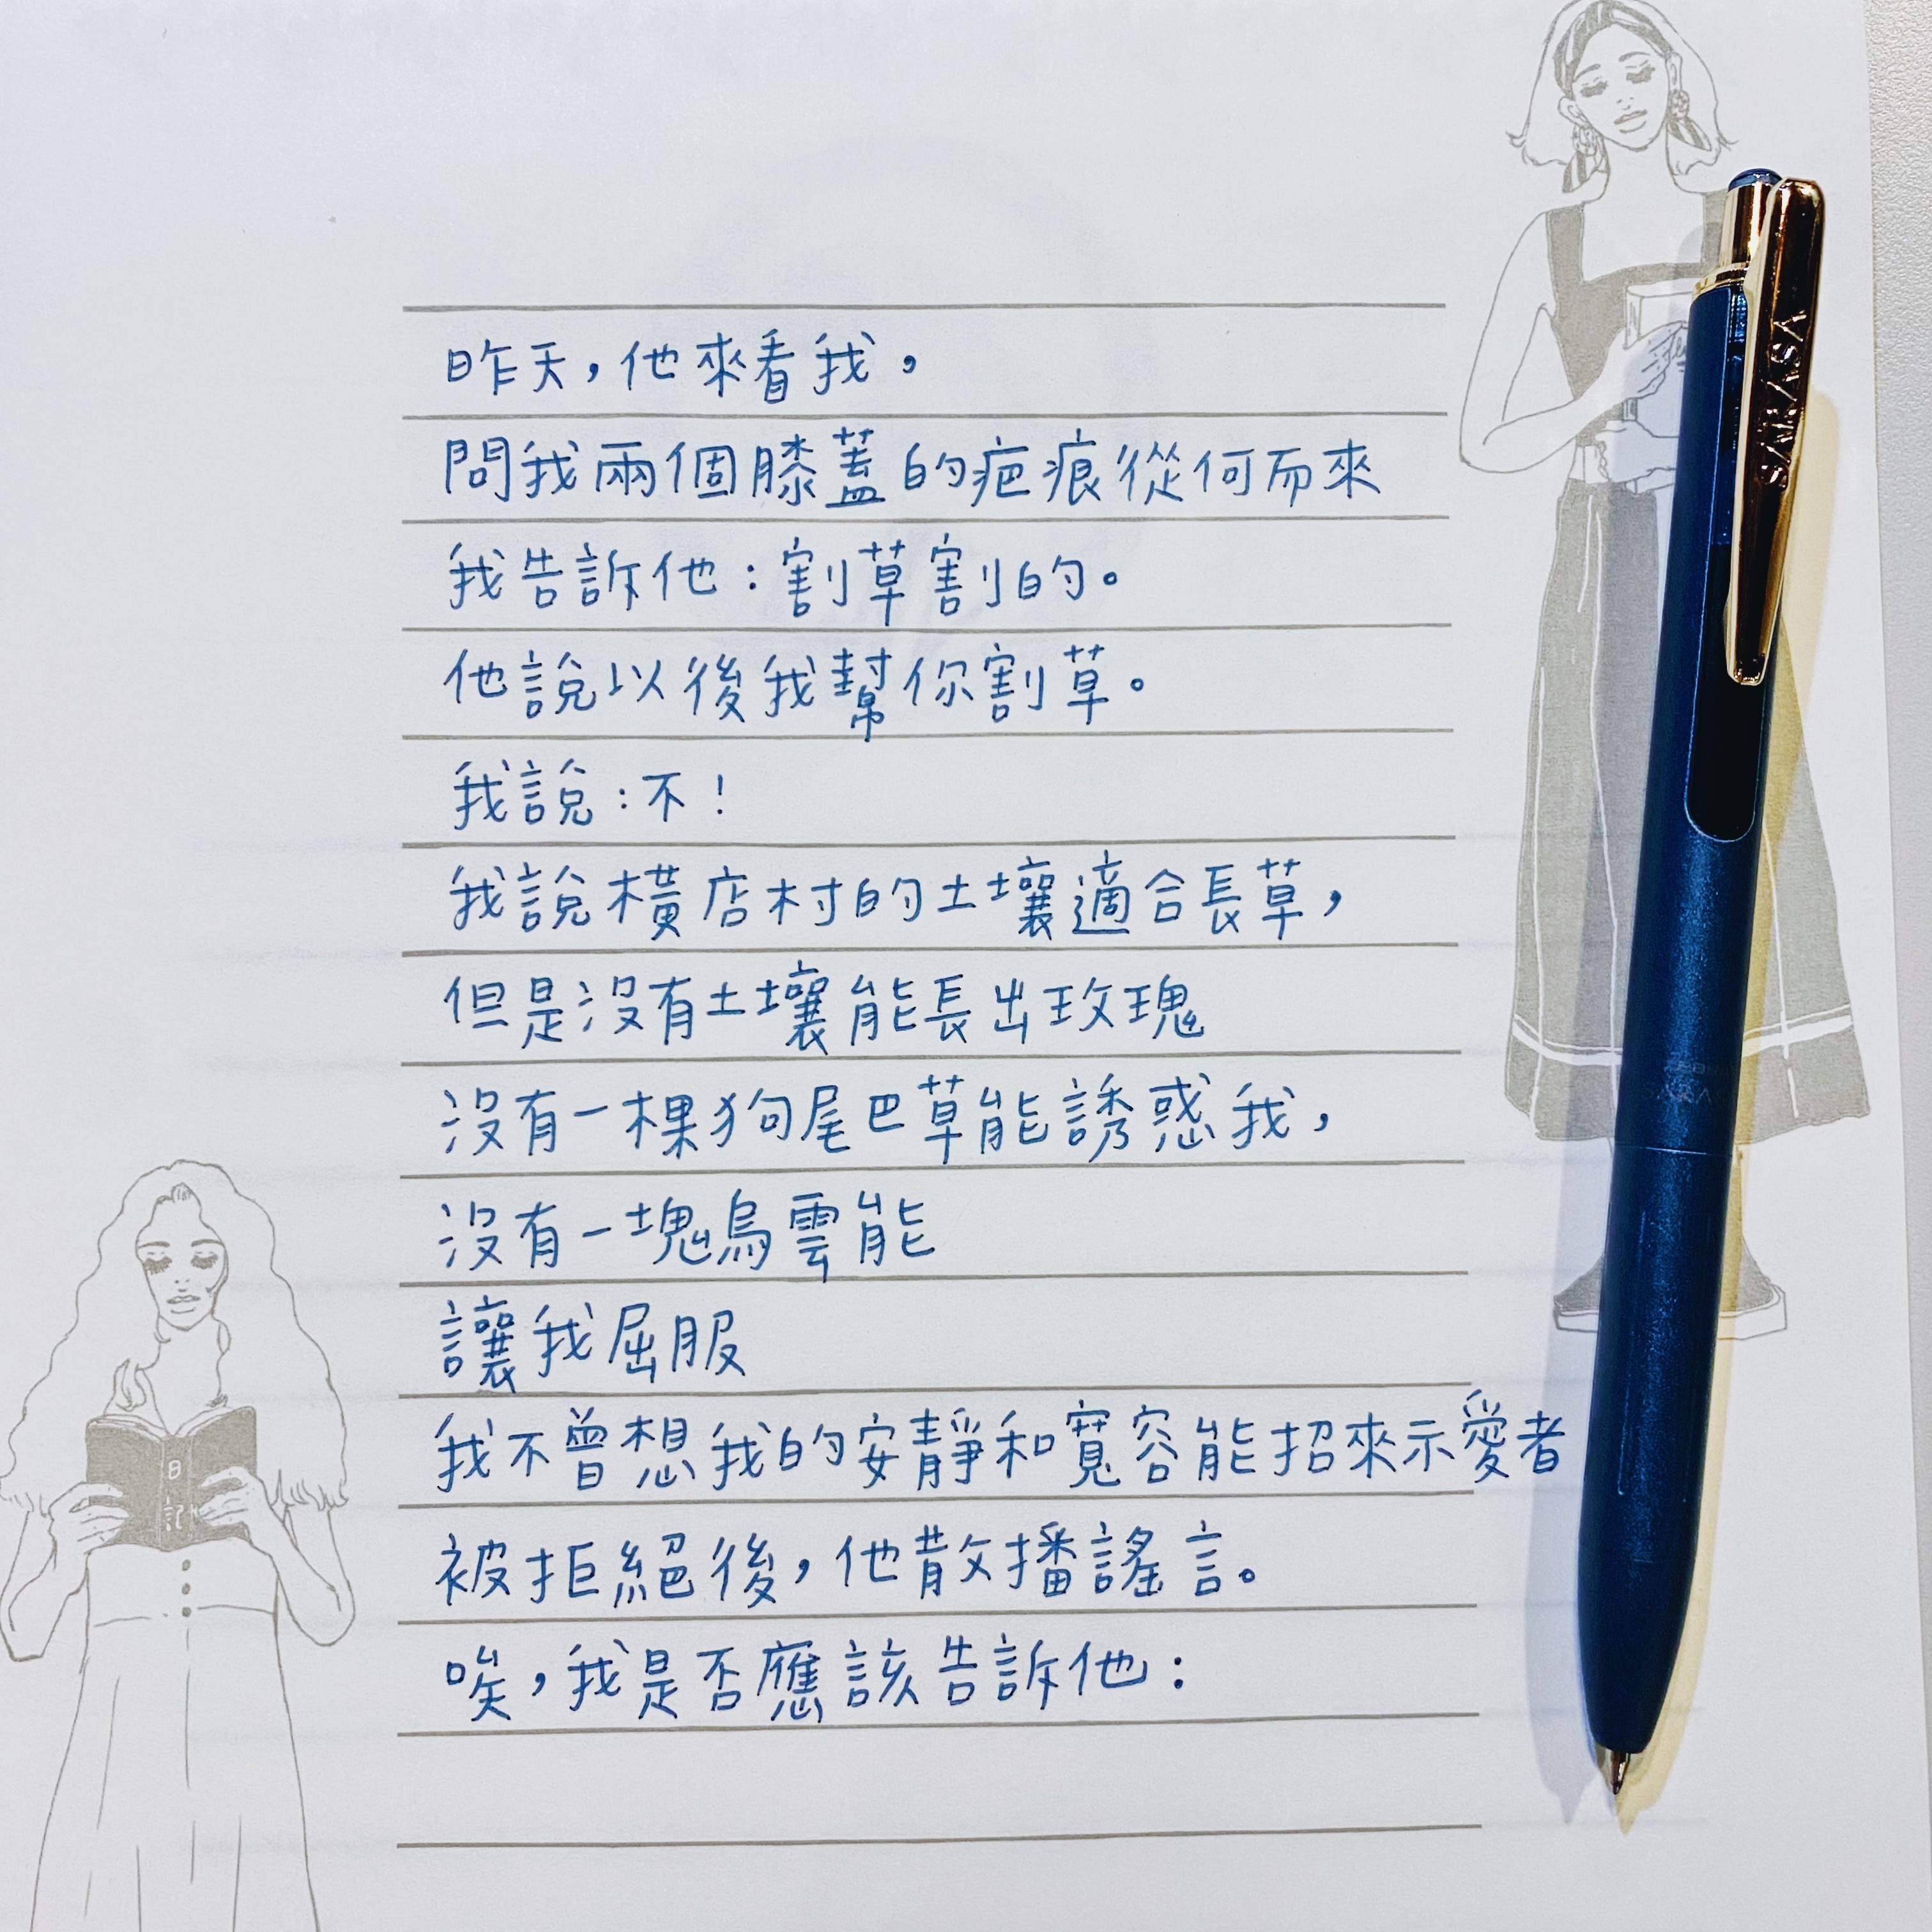 昨天，他來看我，
問我兩個膝蓋的疤痕從何而來
我告訴他：割草割的。
他說以後我幫你割草。
我說：不！
我說橫店村的土壤適合長草，
但是沒有土壤能長出玫瑰
沒有一棵狗尾巴草能誘惑我，
沒有一塊烏雲能
讓我屈服
我不曾想我的安靜和寬容能招來示愛者
被拒絕後，他散播謠言。
唉，我是否應該告訴他：
SARASA
日
記